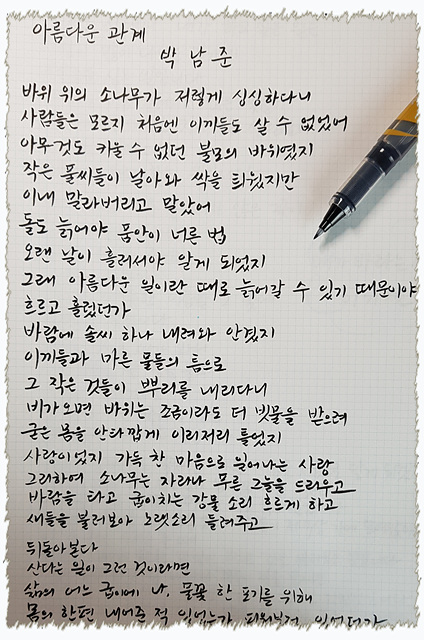 아름다운 관계
박 남 준
바위 위의 소나무가 저렇게 싱싱하다니
사람들은 모르지 처음엔 이끼들도 살 수 없었어
아무것도 키울 수 없던 불모의 바위였지
작은 풀씨들이 날아와 싹을 틔웠지만
이내 말라버리고 말았어
돌도 늙어야 품안이 너른 법
오랜 날이 흘러서야 알게 되었지
그래 아름다운 일이란 때로 늙어갈 수 있기 때문이야
흐르고 흘렀던가
바람에 솔씨 하나 내려와 안겼지
이끼들과 마른 풀들의 틈으로
그 작은 것들이 뿌리를 내리다니
비가오면 바위는 조금이라도 더 빗물을 받으려
굳은 몸을 안타깝게 이리저리 틀었지
사랑이었지 가득 찬 마음으로 일어나는 사랑
그리하여 소나무는 자라나 푸른 그늘을 드리우고
바람을 타고 굽이치는 강물 소리 흐르게 하고
새들을 불러모아 노랫소리 들려주고
뒤돌아본다
산다는 일이 그런 것이라면
삶의 어느 굽이에 나, 풀꽃 한 포기를 위해
몸의 한편 내어준 적 있었는가 피워본적 있었던가